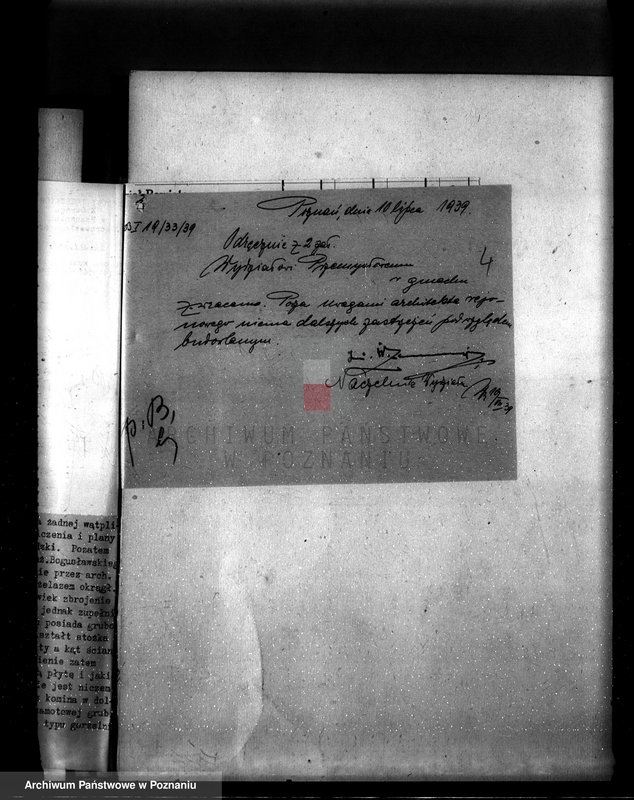 Poznań, dnia 10 lipca 1939.
I 19/33/39
Odręcznie z 2 zał.
Wydziałowi Przemysłowemu
w gmachu
4
zwracam. Poza uwagami architekta rejo-
nowego niema dalszych zastrzeżeń pod względem
budowlanym.
Naczelnik Wydziału
p. B.
ARCHIWUM PAŃSTWOWE
W POZNANIU
żadnej wątpli-
czenia i plany
zki. Pozatem
ż.Bogusławskieg
ie przez arch.
żelazem okrągł.
wiek zbrojenie
jednak zupełni
posiada grubo
ształt stożka
ty a kąt ścian
ienie zatem
płytę i jaki
e jest niczem
komina w dol-
zamotowej grub
typu gorzelni
Archiwum Państwowe w Poznaniu